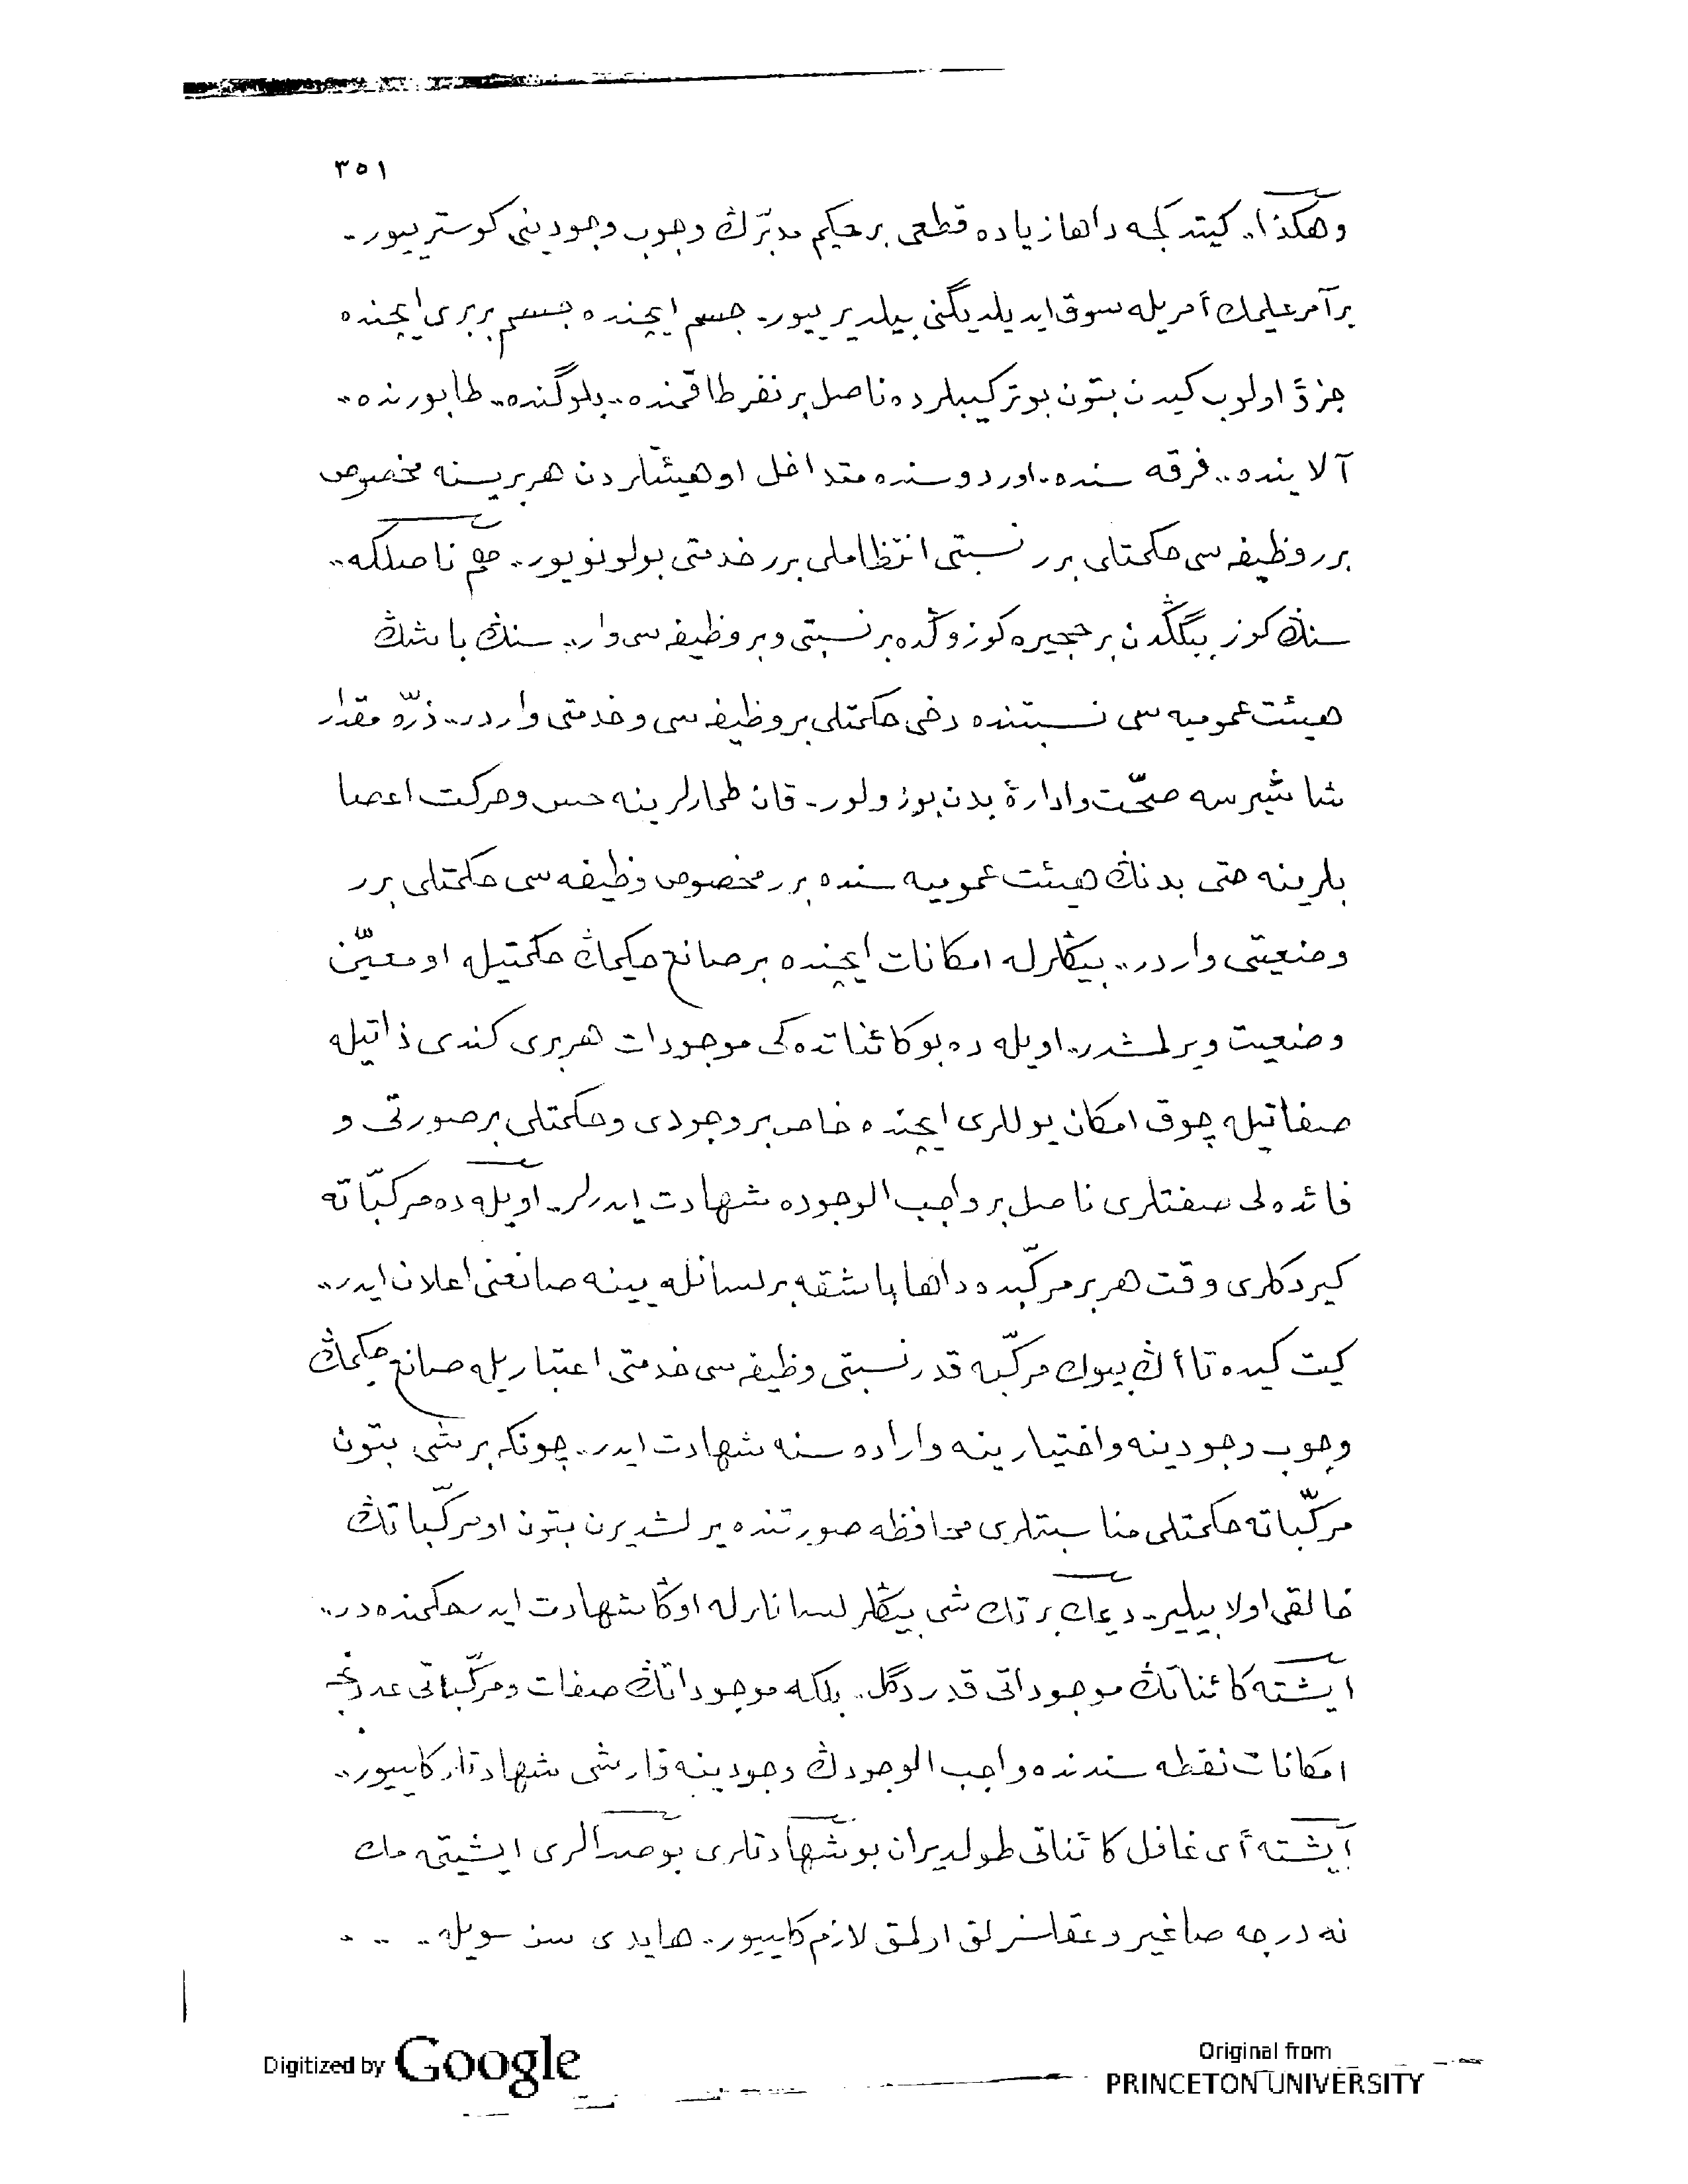 ٣٥١
وهكذا.. كيتدكجه داها زياده قطعی بر حكيم مدبّرڭ وجوب وجودينی كوستريیور..
بر آمر عليمك أمريله سوق ايديلديگنی بيلديريیور.. جسم ايچنده جسم بربری ايچنده
جزؤ اولوب كيدن بتون بو تركيبلرده ناصل بر نفر طاقمنده.. بلوگنده.. طابورنده..
آلاينده.. فرقه سنده.. اوردوسنده متداخل او هيئتلردن هر بريسنه مخصوص
برر وظيفه سی حكمتلی برر نسبتی انتظاملی برر خدمتی بولونويور.. هم ناصلكه..
سنڭ كوز ببگڭدن بر حجيره كوزوڭده بر نسبتی و بر وظيفه سی وار.. سنڭ باشڭ
هيئت عموميه سی نسبتنده دخی حكمتلی بر وظيفه سی و خدمتی واردر.. ذرّه مقدار
شاشيرسه صحّت و ادارۀ بدن بوزولور.. قان طمارلرينه حس و حركت اعصا
بلرينه حتی بدنڭ هيئت عموميه سنده برر مخصوص وظيفه سی حكمتلی برر
وضعيتی واردر.. بيڭلرله امكانات ايچنده بر صانع حكيمڭ حكمتيله او معيّن
وضعيت ويرلمشدر.. اويله ده بو كائناتده كی موجودات هر بری كندی ذاتيله
صفاتيله چوق امكان يوللری ايچنده خاص بر وجودی و حكمتلی بر صورتی و
فائده لی صفتلری ناصل بر واجب الوجوده شهادت ايدرلر.. اويله ده مركبّاته
كيردكلری وقت هر بر مركّبده داها باشقه بر لسانله يينه صانعنی اعلان ايدر..
كيت كيده تا أڭ بيوك مركّبه قدر نسبتی وظيفه سی خدمتی اعتباريله صانع حكيمڭ
وجوب وجودينه و اختيارينه و اراده سنه شهادت ايدر.. چونكه بر شی بتون
مركّباته حكمتلی مناسبتلری محافظه صورتنده يرلشديرن بتون او مركّباتڭ
خالقی اولابيلير.. ديمك بر تك شی بيڭلر لسانلرله اوڭا شهادت ايدر حكمنده در..
ايشته كائناتڭ موجوداتی قدر دگل.. بلكه موجوداتڭ صفات و مركّباتی عددنجه
امكانات نقطه سندنده واجب الوجودڭ وجودينه قارشی شهادتلر كليیور..
ايشته أی غافل كائناتی طولديران بو شهادتلری بو صدالری ايشيتمه مك
نه درجه صاغير و عقلسزلق اولمق لازم كليیور.. هايدی سن سويله.. ..
Digitized by Google
Original from
PRINCETON UNIVERSITY